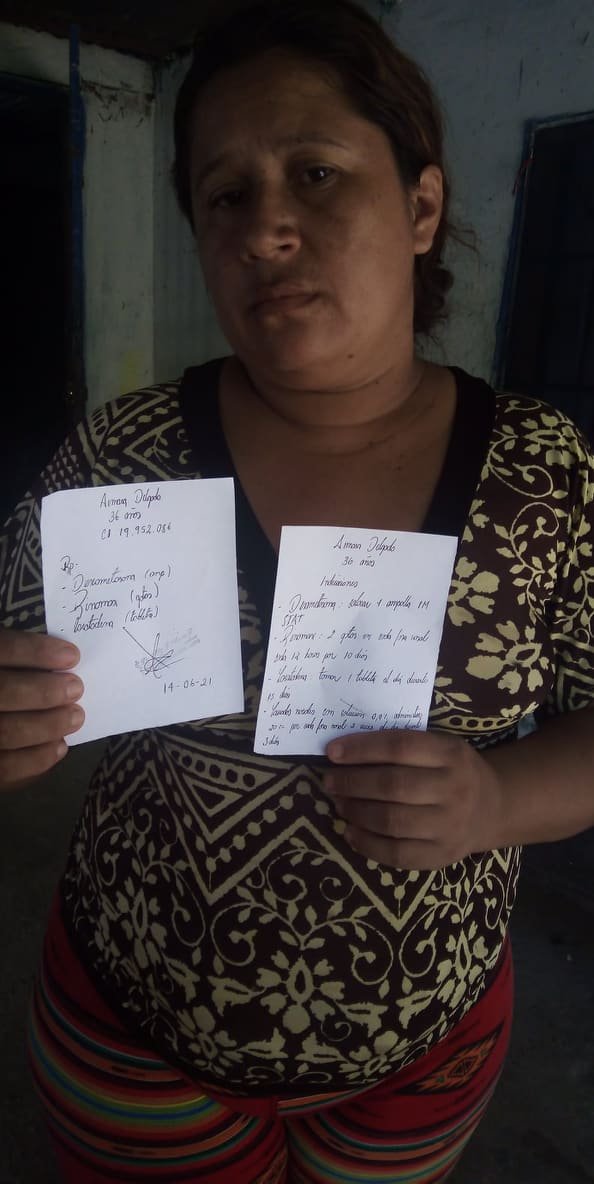 Delgado
36 años
CI 19.952.086
Rp:
- Dexametasona (amp)
- Rinomax (gotas)
- Loratadina (tableta)
14-06-21
Delgado
36 años
Indicaciones
- Dexametasona: colocar 1 ampolla IM
STAT
- Rinomax: 2 gotas en cada fosa nasal
cada 12 horas por 10 días
- Loratadina tomar 1 tableta al día durante
15 días
- Lavados nasales con solución 0,9%
20 cc por cada fosa nasal
3 días